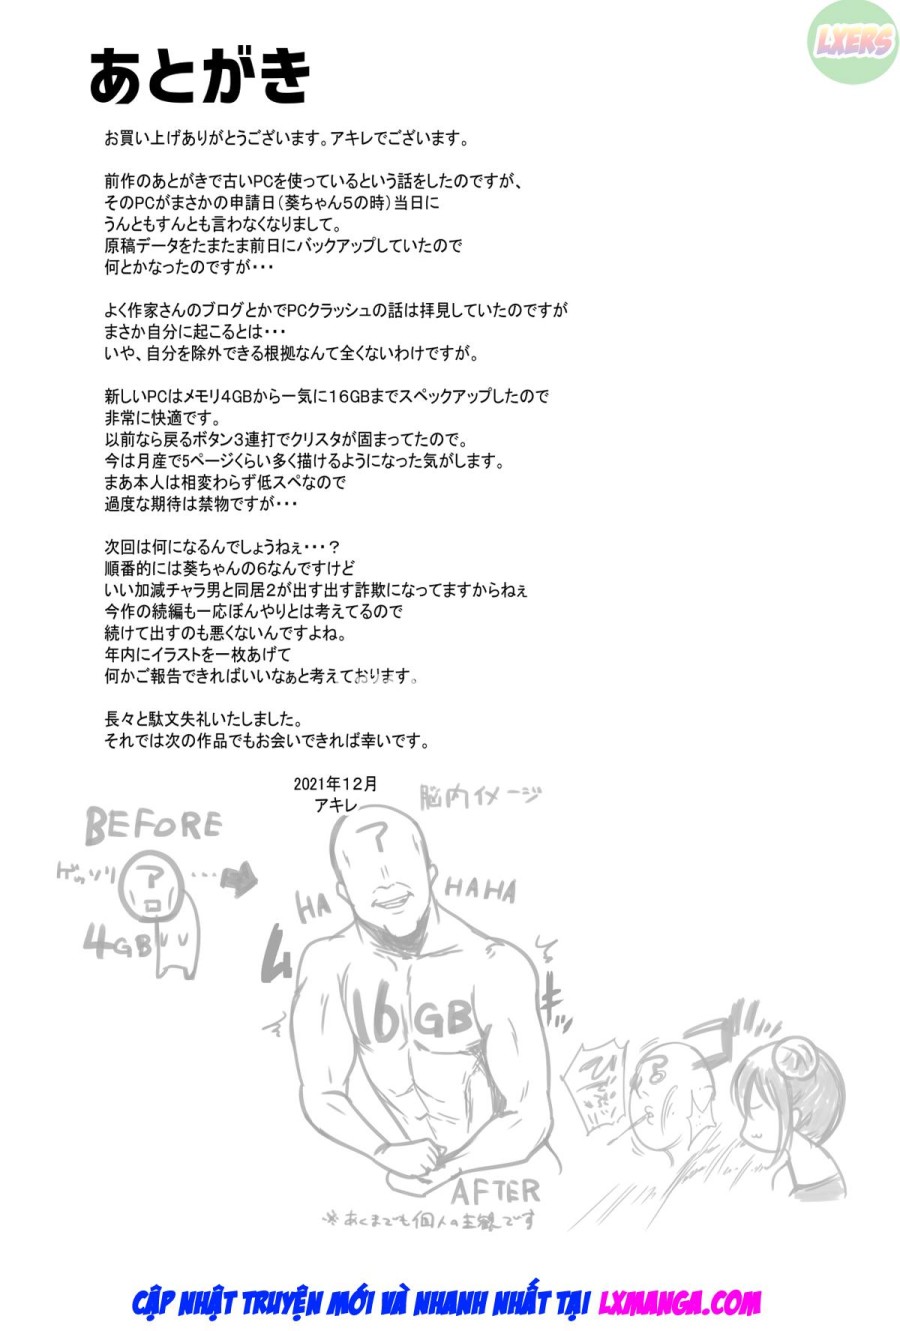 LXERS
あとがき
お買い上げありがとうございます。アキレでございます。
前作のあとがきで古いPCを使っているという話をしたのですが、
そのPCがまさかの申請日（葵ちゃん5の時）当日に
うんともすんとも言わなくなりまして。
原稿データをたまたま前日にバックアップしていたので
何とかなったのですが・・・
よく作家さんのブログとかでPCクラッシュの話は拝見していたのですが
まさか自分に起こるとは・・・
いや、自分を除外できる根拠なんて全くないわけですが。
新しいPCはメモリ4GBから一気に16GBまでスペックアップしたので
非常に快適です。
以前なら戻るボタン3連打でクリスタが固まってたので。
今は月産で5ページくらい多く描けるようになった気がします。
まあ本人は相変わらず低スペなので
過度な期待は禁物ですが・・・
次回は何になるんでしょうねぇ・・・？
順番的には葵ちゃんの6なんですけど
いい加減チャラ男と同居2が出す出す詐欺になってますからねぇ
今作の続編も一応ぼんやりとは考えてるので
続けて出すのも悪くないんですよね。
年内にイラストを一枚あげて
何かご報告できればいいなぁと考えております。
長々と駄文失礼いたしました。
それでは次の作品でもお会いできれば幸いです。
2021年12月
アキレ
脳内イメージ
BEFORE
ゲッソリ
?
・・・
4GB
?
HA
HAHA
ム
キッ
16GB
AFTER
※あくまでも個人の主観です
CẬP NHẬT TRUYỆN MỚI VÀ NHANH NHẤT TẠI LXMANGA.COM